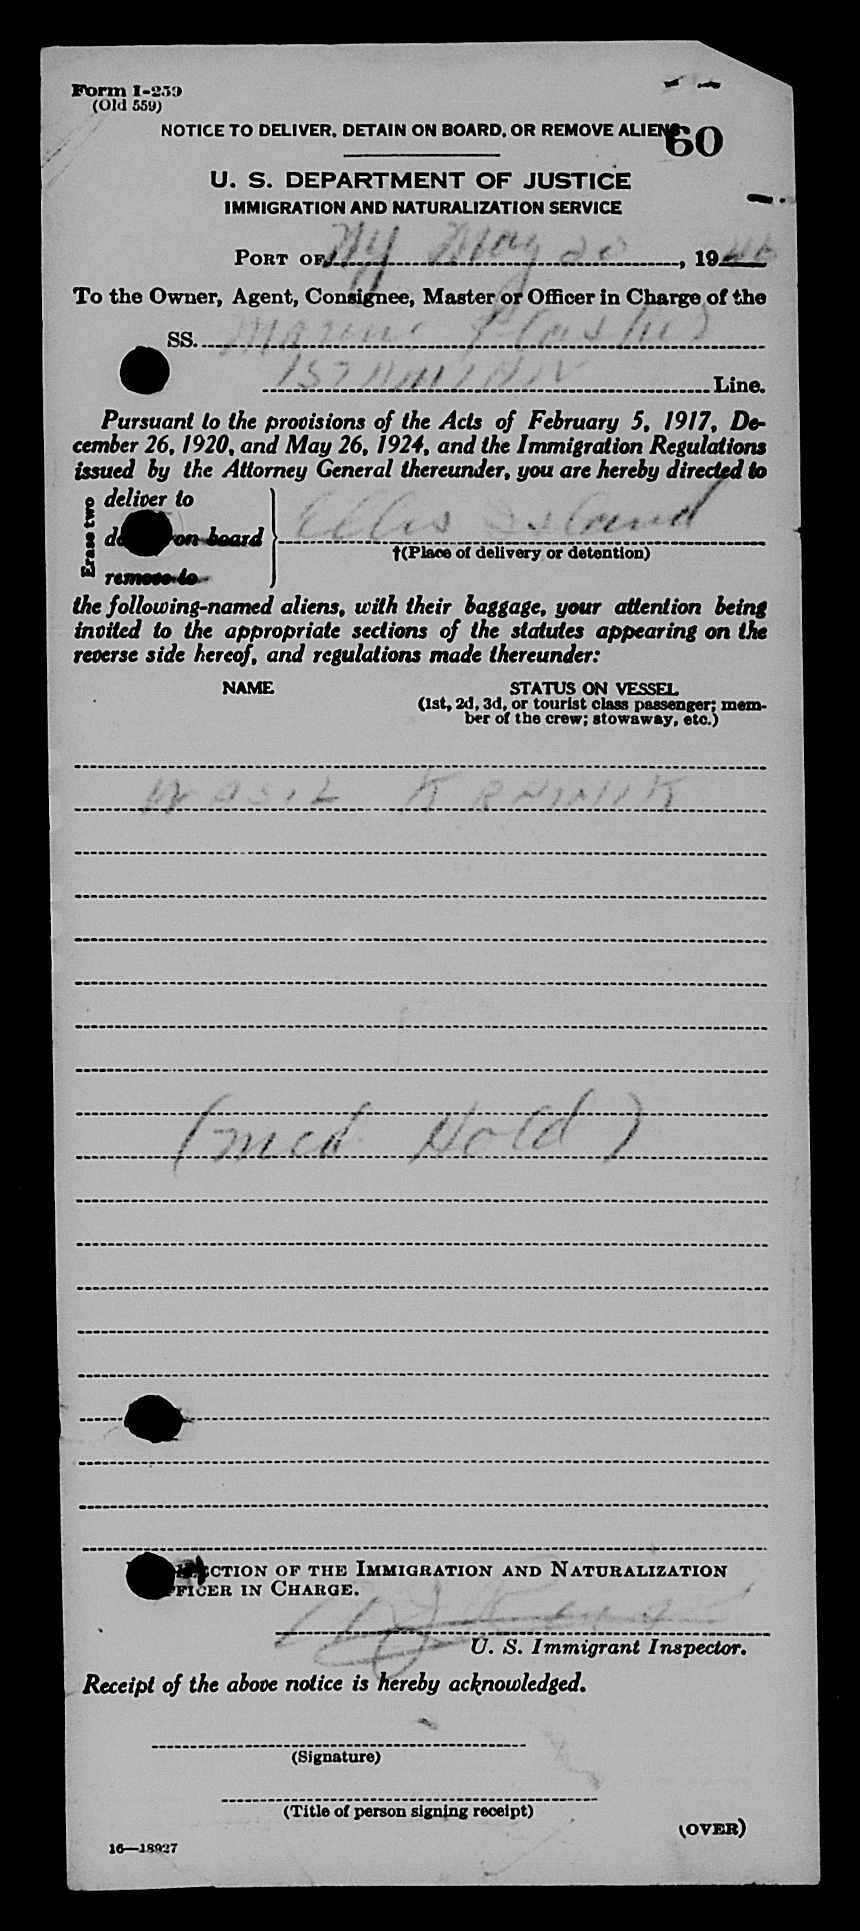 Form I-259
(Old 559)
NOTICE TO DELIVER, DETAIN ON BOARD, OR REMOVE ALIENS
60
U. S. DEPARTMENT OF JUSTICE
IMMIGRATION AND NATURALIZATION SERVICE
PORT OF NY May 20, 1946
To the Owner, Agent, Consignee, Master or Officer in Charge of the
SS. Marine Flasher
Line.
Pursuant to the provisions of the Acts of February 5, 1917, De-
cember 26, 1920, and May 26, 1924, and the Immigration Regulations
issued by the Attorney General thereunder, you are hereby directed to
Erase two
deliver to
on board
remove to
Ellis Island
†(Place of delivery or detention)
the following-named aliens, with their baggage, your attention being
invited to the appropriate sections of the statutes appearing on the
reverse side hereof, and regulations made thereunder:
NAME STATUS ON VESSEL
(1st, 2d, 3d, or tourist class passenger; mem-
ber of the crew; stowaway, etc.)
WASIL
(med Hold)
CTION OF THE IMMIGRATION AND NATURALIZATION
FICER IN CHARGE.
U. S. Immigrant Inspector.
Receipt of the above notice is hereby acknowledged.
(Signature)
(Title of person signing receipt)
(OVER)
16—18927